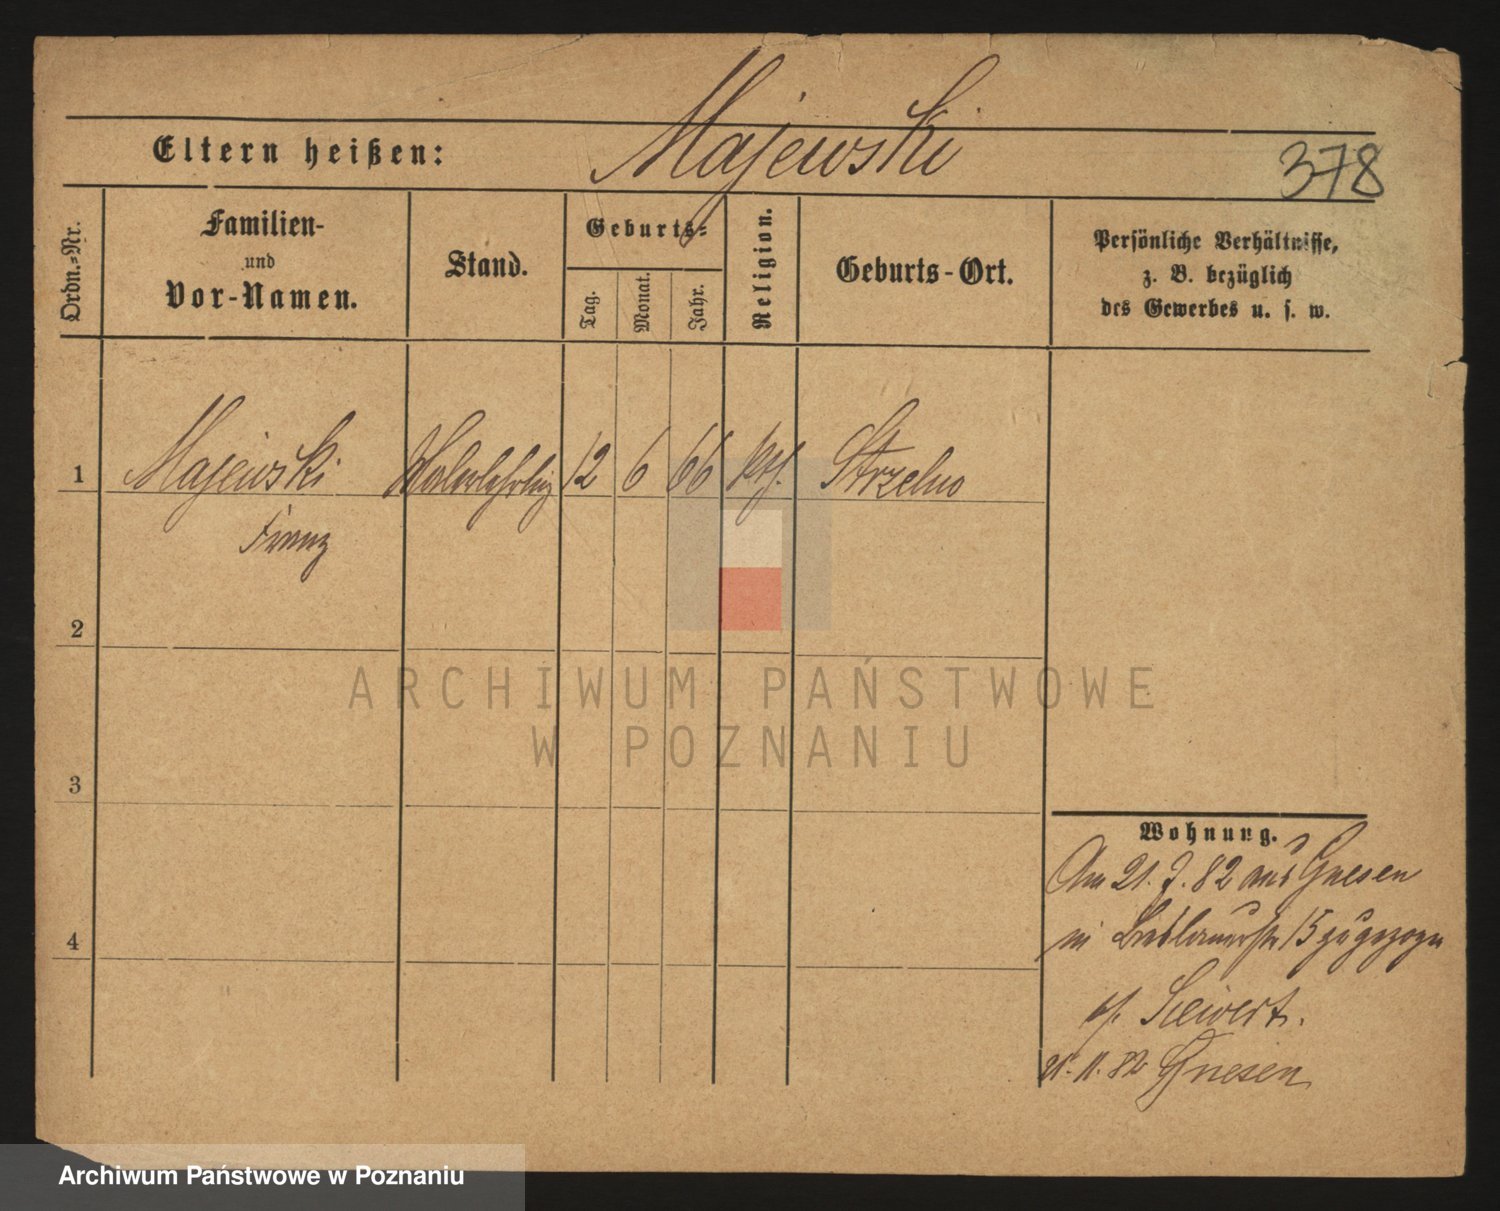 Majewski
378
Eltern heißen:
Ordn.-Nr.
Familien-
und
Vor-Namen.
Stand.
Geburts-
Tag.
Monat.
Jahr.
Religion.
Geburts-Ort.
Persönliche Verhältnisse,
z. B. bezüglich
des Gewerbes u. s. w.
1 Majewski Malerlehrling 12 6 66 kth. Strzelno
Franz
2
3
4
ARCHIWUM PAŃSTWOWE
W POZNANIU
Wohnung.
Am 21. 7. 82 aus Gnesen
in 15 zugezogen
Siewert.
11. 82 Gnesen
Archiwum Państwowe w Poznaniu